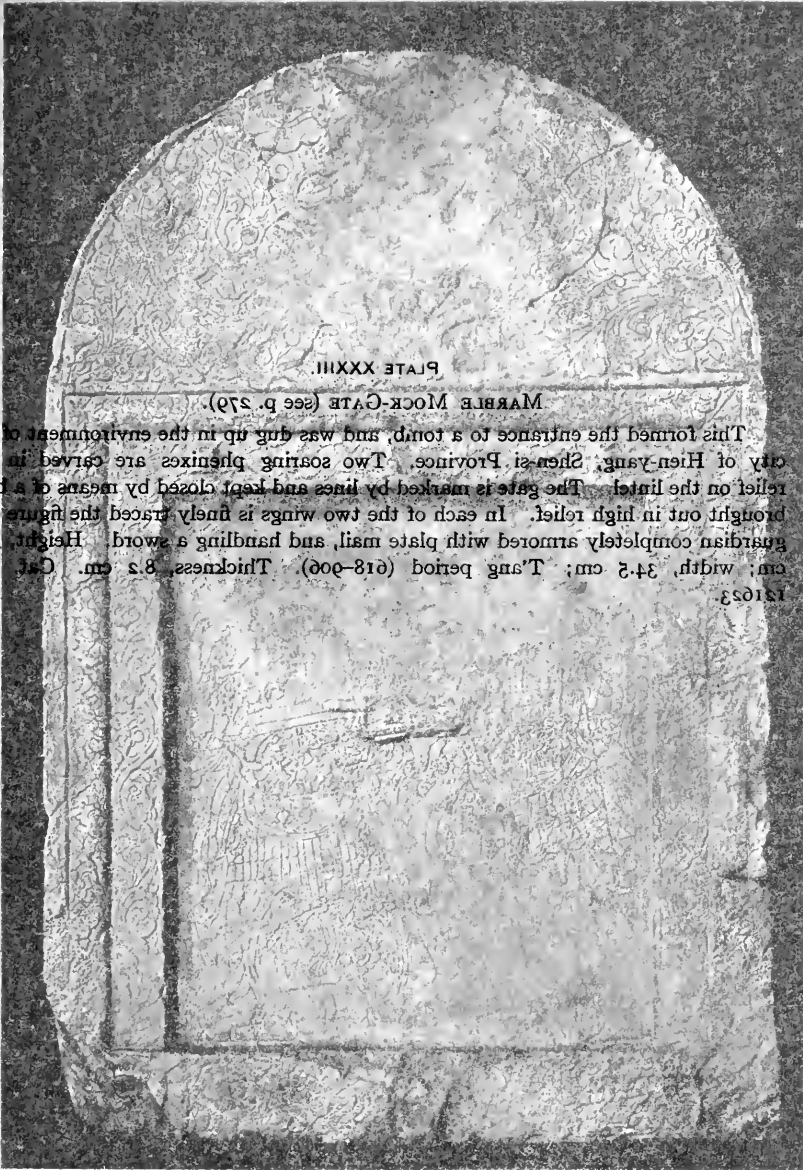 PLATE XXXIII.
MARBLE MOCK-GATE (see p. 279).
This formed the entrance to a tomb, and was dug up in the environment of
city of Hien-yang, Shen-si Province. Two soaring phenixes are carved in
relief on the lintel The gate is marked by lines and kept closed by means of a
brought out in high relief. In each of the two wings is finely traced the figure
guardian completely armored with plate mail, and handling a sword. Height,
cm; width, 34.5 cm; T'ang period (618–906). Thickness, 8.2 cm. Cat.
121623.